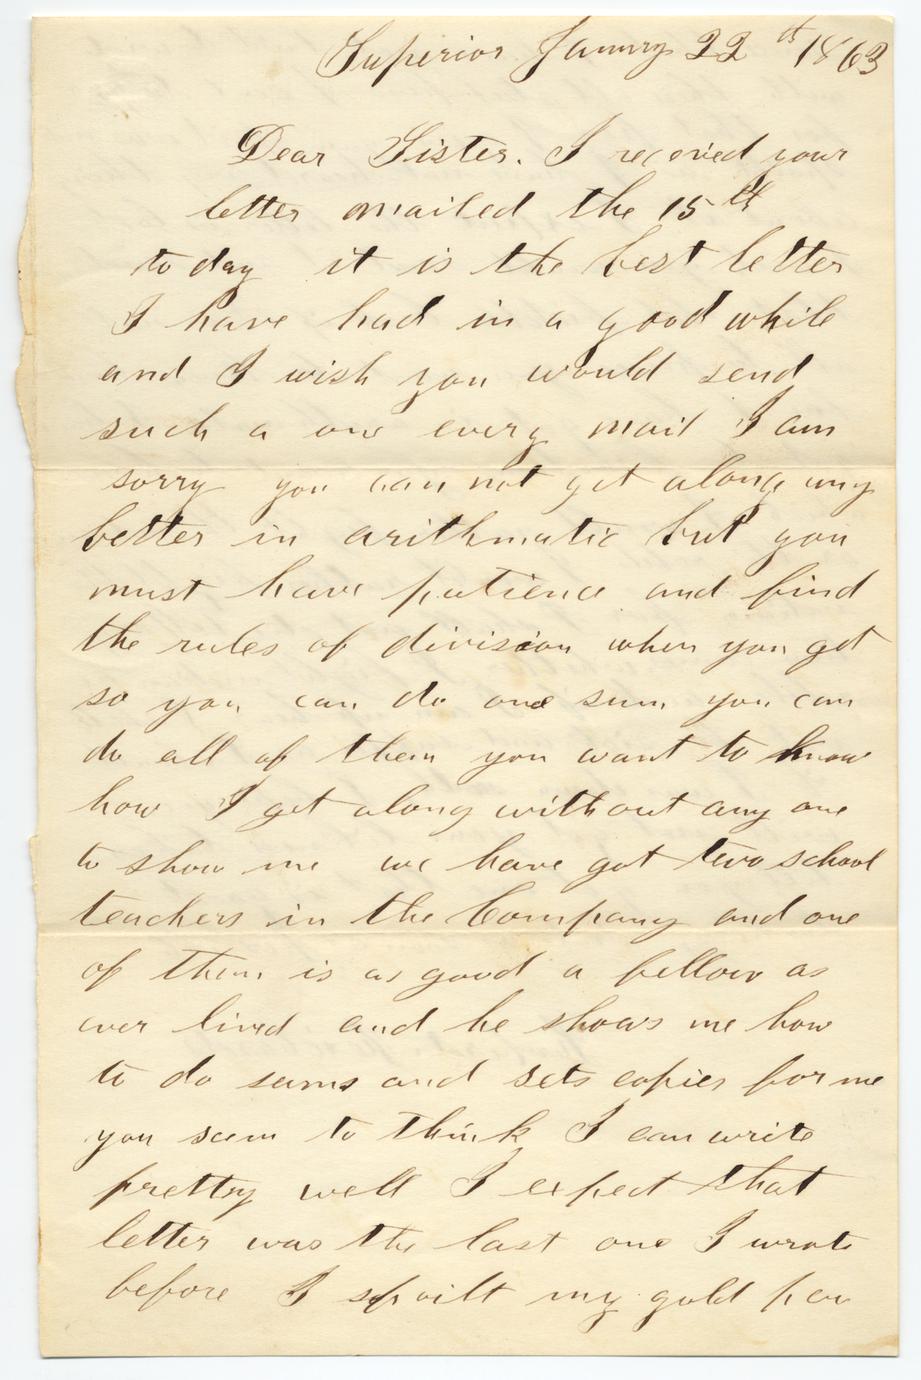 Superior Janury 22th 1863
Dear Sister. I recevied your
letter mailed the 15th
to day it is the best letter
I have had in a good while
and I wish you would send
such a one every mail I am
sorry you can not get along any
better in arithmatic but you
must have patience and find
the rules of division when you get
so you can do one sum you can
do all of them you want to know
how I get along without any one
to show me we have got two school
teachers in the Company and one
of them is as good a fellow as
ever lived and he shows me how
to do sums and sets copies for me
you seem to think I can write
pretty well I expect that
letter was the last one I wrote
before I spoilt my gold pen